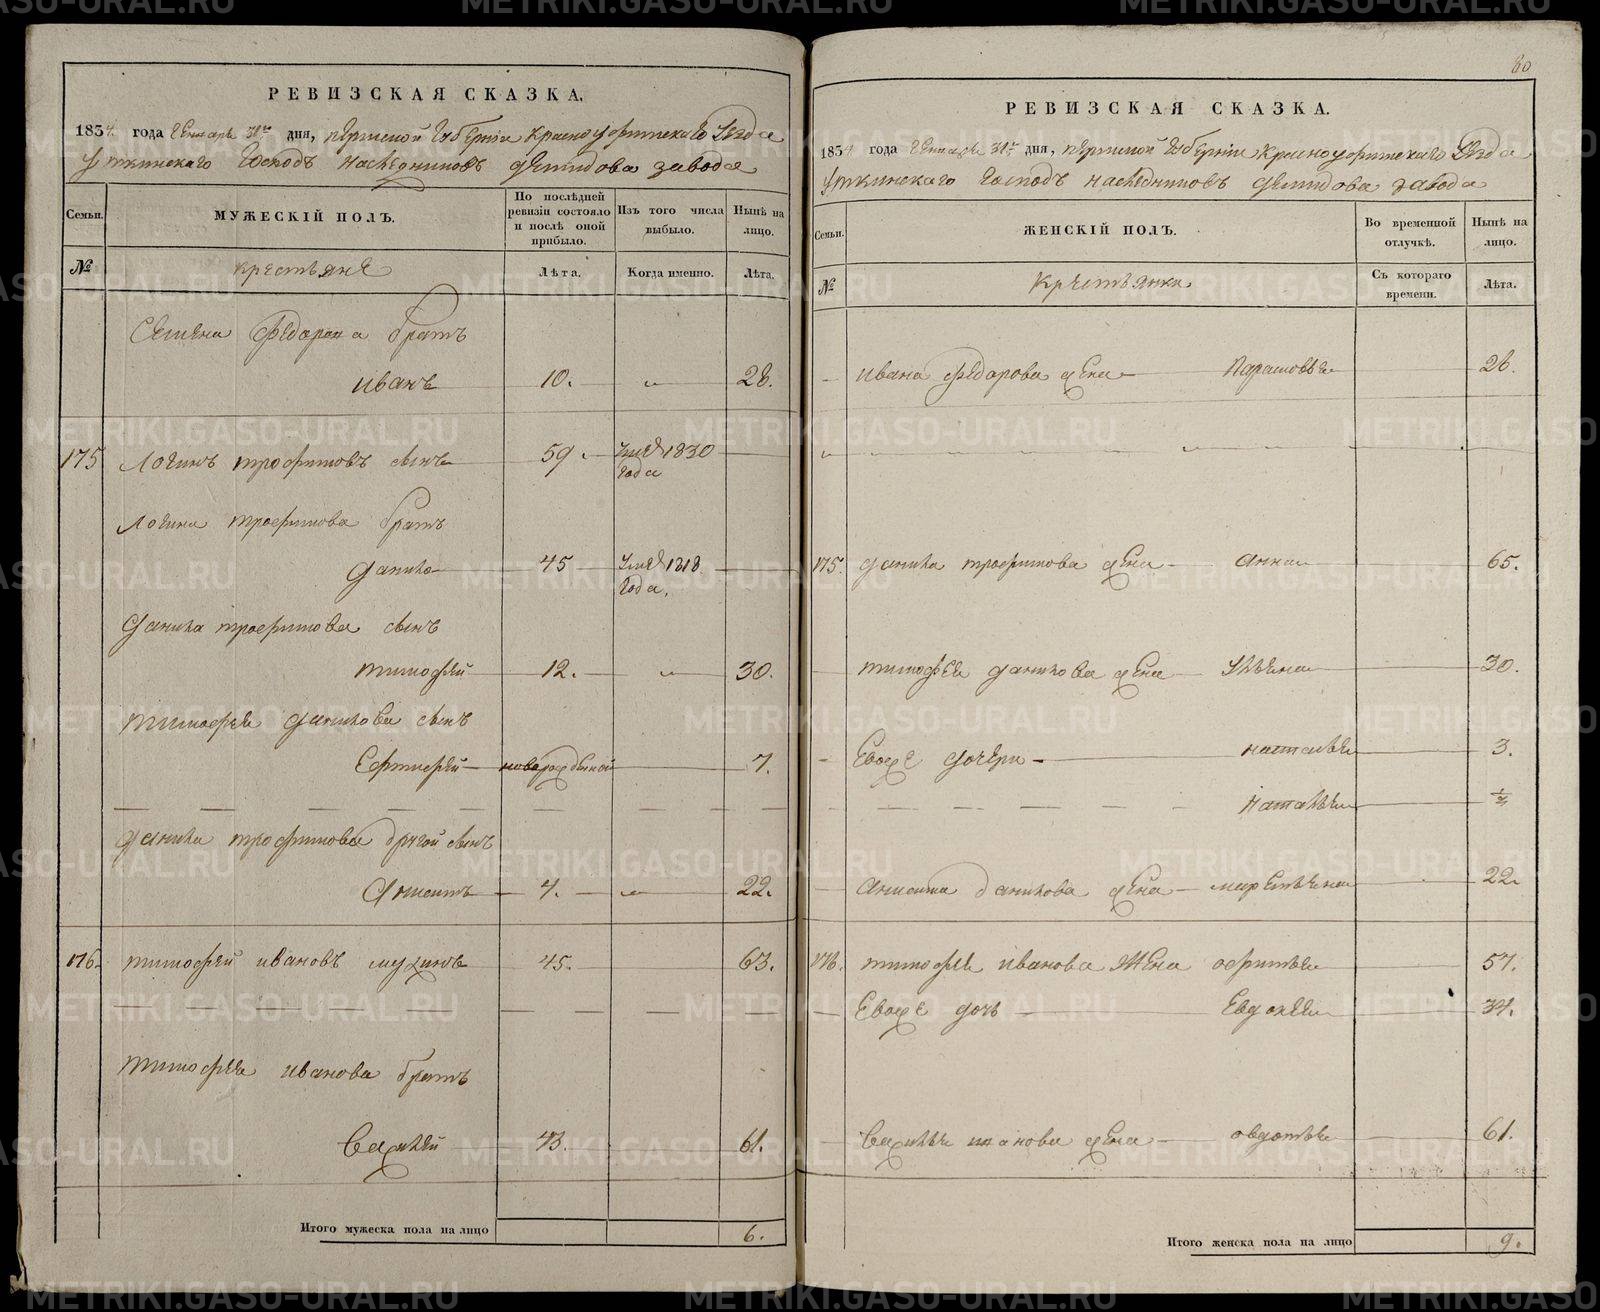 80
РЕВИЗСКАЯ СКАЗКА.
1834 года Генваря 31го дня, Пермской Губерніи Красноуфимскаго Уезда
Уткинскаго Господъ наследниковъ Демидова завода
Семьи. МУЖЕСКІЙ ПОЛЪ. По послѣдней ревизіи состояло и послѣ оной прибыло. Изъ того числа выбыло. Нынѣ на лицо.
№ крестьяне Лѣта. Когда именно. Лѣта.
Семена Федорова братъ
Иванъ 10. „ 28.
175 Логинъ трофимовъ сынъ 59. Умре 1830
года
Логина трофимова братъ
Данило 45 Умре 1818
года.
Данила трофимова сынъ
тимофей 12. „ 30.
тимофея данилова сынъ
Ефтифей новорожденной 7.
Данила трофимова другой сынъ
4. „ 22.
176. тимофей ивановъ мужинъ 45. 63.
тимофея иванова братъ
Василей 43. 61.
Итого мужеска пола на лицо 6.
РЕВИЗСКАЯ СКАЗКА.
1834 года Генваря 31го дня, Пермской Губерніи Красноуфимскаго Уезда
Уткинскаго Господъ наследниковъ Демидова завода
Семьи. ЖЕНСКІЙ ПОЛЪ. Во временной отлучкѣ. Нынѣ на лицо.
№ Крестьянки Съ котораго времени. Лѣта.
Ивана федорова жена Парасковья 26.
„ „ „ „
175. Данила трофимова жена Анна 65.
тимофея данилова жена Ульяна 30.
Евоже дочери Наталья 3.
Наталья ½
данилова жена 22.
176. тимофея иванова жена офимья 57.
Евоже дочь Евдокея 34.
Василья иванова жена овдотья 61.
Итого женска пола на лицо 9.
METRIKI.GASO-URAL.RU